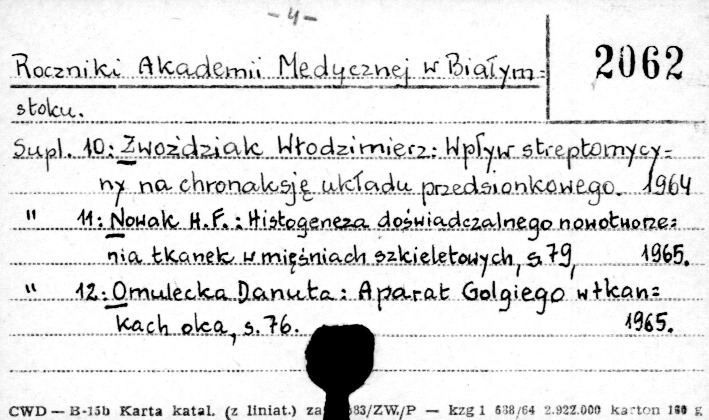 - 4 -
2062
Roczniki Akademii Medycznej w Białym=
stoku.
Supl. 10: Zwoździak Włodzimierz: Wpływ streptomycy=
ny na chronaksję układu przedsionkowego. 1964
" 11: Nowak H.F.: Histogeneza doświadczalnego nowotworze=
nia tkanek w mięśniach szkieletowych, s. 79, 1965.
" 12: Omulecka Danuta: Aparat Golgiego w tkan=
kach oka, s. 76. 1965.
CWD — B-15b Karta katal. (z liniat.) za 683/ZW./P — kzg 1 638/64 2.922.000 karton 160 g